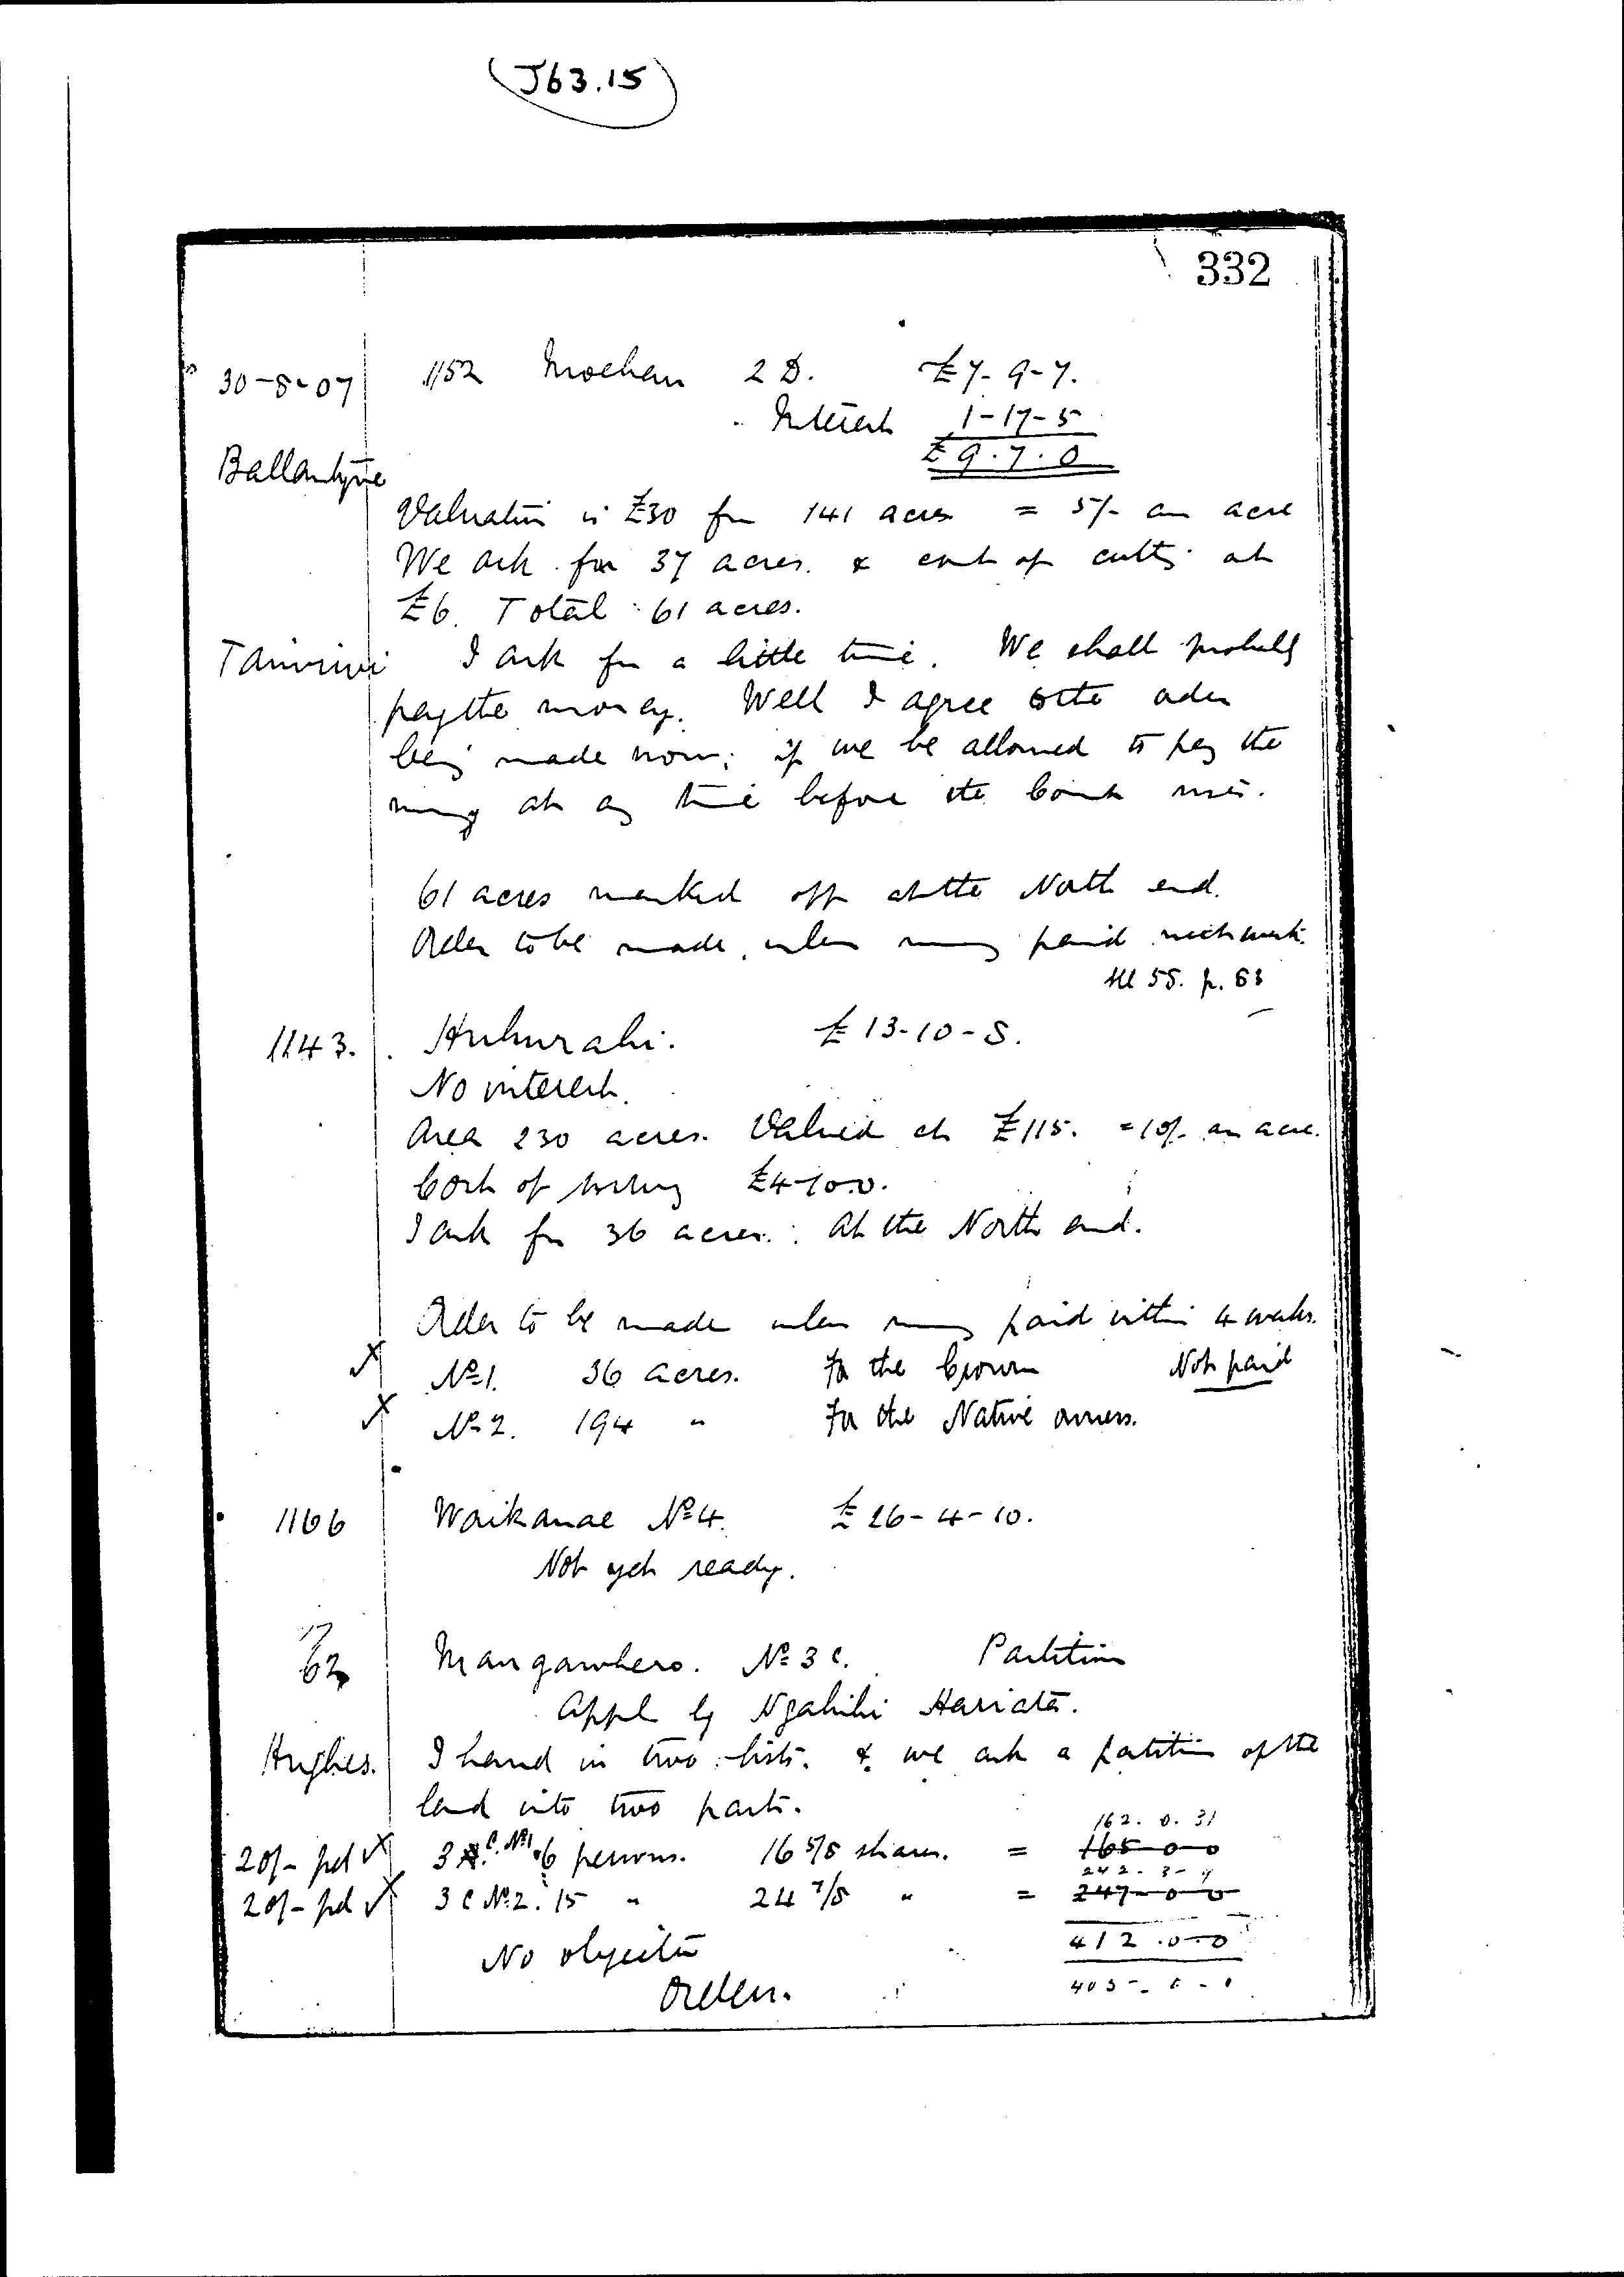 J63.15
332
30-8-07 1152 Moehau 2 D. £7-9-7.
Interest 1-17-5
£9.7.0
Ballantyne
Valuation is £30 for 141 acres = 5/- an acre
We ask for 37 acres. & cost of cutting at
£6. Total 61 acres.
I ask for a little time. We shall probably
pay the money. Well I agree to the order
being made now; if we be allowed to pay the
money at any time before the Court rises.
61 acres marked off at the North end.
Order to be made, unless money paid
55. p.
1143. Huhurahi. £13-10-8.
No interest.
Area 230 acres. Valued at £115. = 10/- an acre.
Cost of £4-10.0.
I ask for 36 acres. At the North end.
Order to be made unless money paid within 4 weeks.
No 1. 36 acres. For the Crown Not paid
No 2. 194 " For the Native owners.
1166 Waikanae No 4. £26-4-10.
Not yet ready.
17
62 Mangawhero. No 3 C. Partition
Appl by Ngahihi Hariata.
Hughes. I hand in two lists. & we ask a partition of the
land into two parts.
162. 0. 31
20/- pd 3 C. No 1. 6 persons. 16 5/8 shares. = 165-0-0
242. 3-9
20/- pd 3 C No. 2. 15 " 24 7/8 " = 247-0-0
412.0-0
No objection
405-0-0
Order.